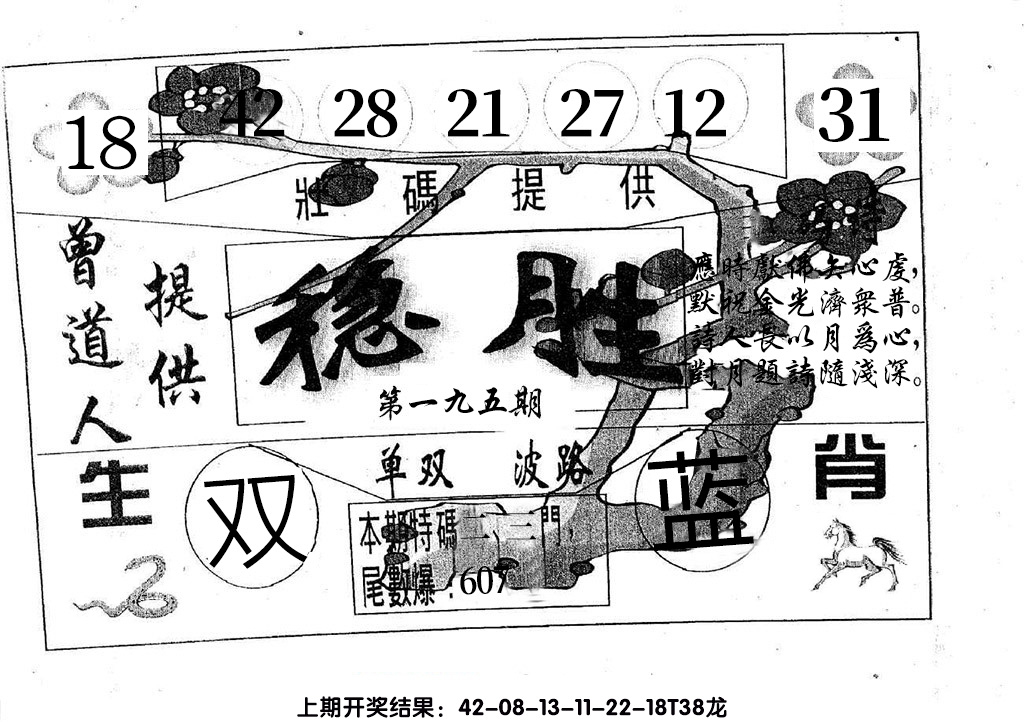 18 42 28 21 27 12 31
壯碼提供
特
曾道人
提供
稳胜
第一九五期
應時獻佛矢心虔，
默祝金光濟衆普。
詩人長以月爲心，
對月題詩隨淺深。
单双 波路
生肖
双 蓝
本期特碼二、三門，
尾數爆：607
上期开奖结果：42-08-13-11-22-18T38龙